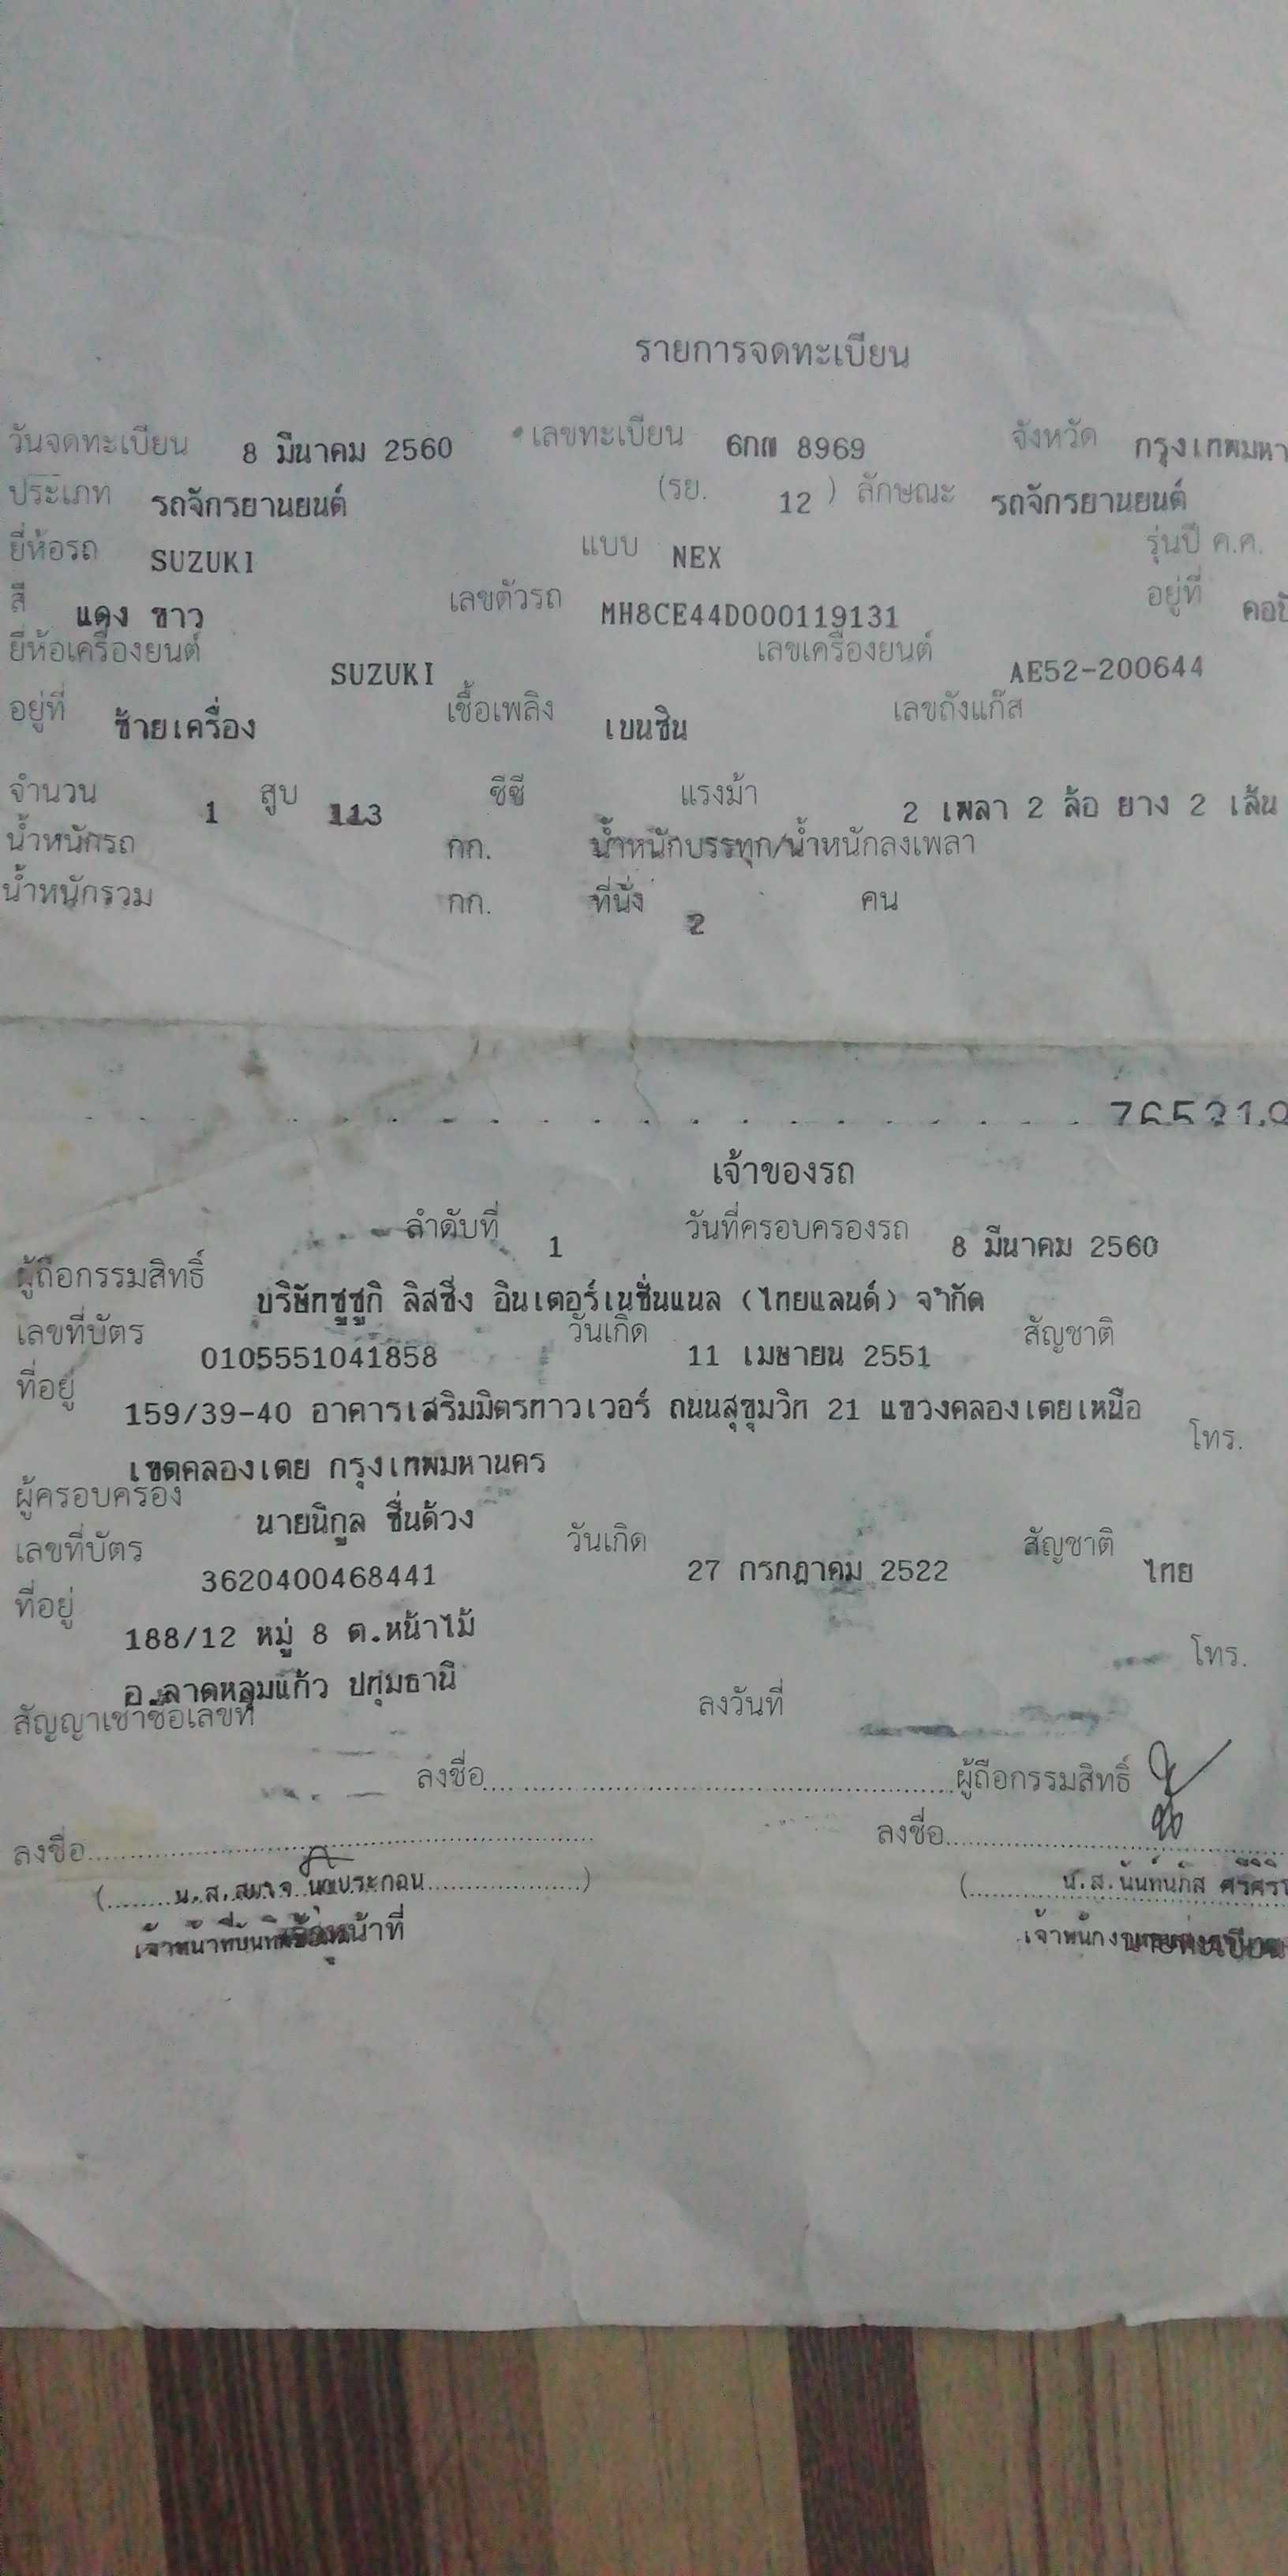 รายการจดทะเบียน
วันจดทะเบียน 8 มีนาคม 2560 เลขทะเบียน 6กฌ 8969 จังหวัด กรุงเทพมหา
ประเภท รถจักรยานยนต์ (รย. 12 ) ลักษณะ รถจักรยานยนต์
ยี่ห้อรถ SUZUKI แบบ NEX รุ่นปี ค.ศ.
สี แดง ขาว เลขตัวรถ MH8CE44D000119131 อยู่ที่
ยี่ห้อเครื่องยนต์ SUZUKI เลขเครื่องยนต์ AE52-200644
อยู่ที่ ซ้ายเครื่อง เชื้อเพลิง เบนซิน เลขถังแก๊ส
จำนวน 1 สูบ 113 ซีซี แรงม้า 2 เพลา 2 ล้อ ยาง 2 เส้น
น้ำหนักรถ กก. น้ำหนักบรรทุก/น้ำหนักลงเพลา
น้ำหนักรวม กก. ที่นั่ง 2 คน
เจ้าของรถ
ลำดับที่ 1 วันที่ครอบครองรถ 8 มีนาคม 2560
ผู้ถือกรรมสิทธิ์ บริษัทซูซูกิ ลิสซิ่ง อินเตอร์เนชั่นแนล (ไทยแลนด์) จำกัด
เลขที่บัตร 0105551041858 วันเกิด 11 เมษายน 2551 สัญชาติ
ที่อยู่ 159/39-40 อาคารเสริมมิตรทาวเวอร์ ถนนสุขุมวิท 21 แขวงคลองเตยเหนือ
เขตคลองเตย กรุงเทพมหานคร โทร.
ผู้ครอบครอง นายนิกูล ชื่นด้วง
เลขที่บัตร 3620400468441 วันเกิด 27 กรกฎาคม 2522 สัญชาติ ไทย
ที่อยู่ 188/12 หมู่ 8 ต.หน้าไม้
อ.ลาดหลุมแก้ว ปทุมธานี โทร.
สัญญาเช่าซื้อเลขที่ ลงวันที่
ลงชื่อ ผู้ถือกรรมสิทธิ์
ลงชื่อ ลงชื่อ